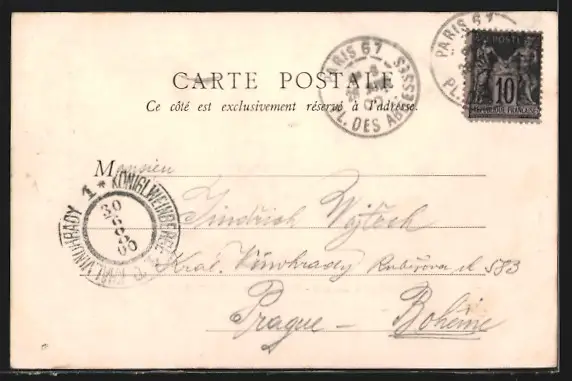 PARIS 67
PL. DES ABBESSES
PARIS 67
PL.
POSTE
10
REPUBLIQUE FRANÇAISE
CARTE POSTALE
Ce côté est exclusivement réservé à l'adresse.
Monsieur
Jindřich Vojtěch
Král. Vinohrady Rubešova ul 583
Prague – Bohême
1 * KÖNIGL. WEINBERGE
KRÁL. VINOHRADY
30
6
00